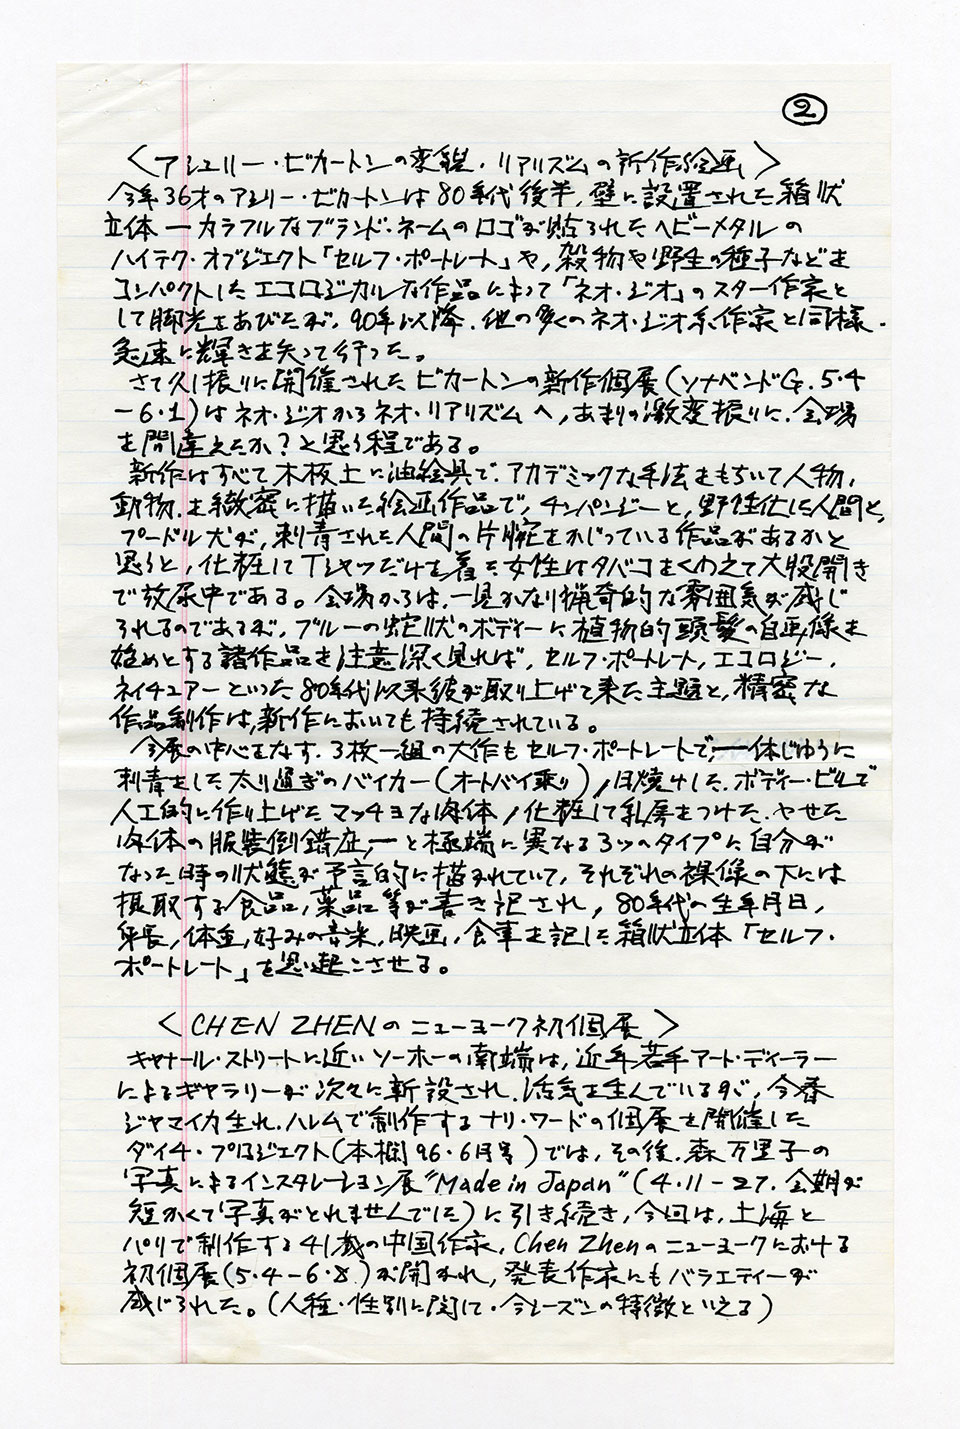 ②
〈アシュリー・ビカートンの変貌・リアリズムの新作絵画〉
今年36才のアシュリー・ビカートンは80年代後半,壁に設置された箱状
立体—カラフルなブランド・ネームのロゴが貼られたヘビーメタルの
ハイテク・オブジェクト「セルフ・ポートレート」や,穀物や野生の種子などを
コンパクトしたエコロジカルな作品によって「ネオ・ジオ」のスター作家と
して脚光をあびたが,90年以降,他の多くのネオ・ジオ系作家と同様.
急速に輝きを失って行った。
さて久し振りに開催されたビカートンの新作個展(ソナベンドG.5・4
−6・1)はネオ・ジオからネオ・リアリズムへ,あまりの激変振りに,会場
を間違えたか?と思う程である。
新作はすべて木板上に油絵具で,アカデミックな手法をもちいて人物,
動物.を緻密に描いた絵画作品で,チンパンジーと,野性化した人間と,
プードル犬が,刺青された人間の片腕をかじっている作品があるかと
思うと,化粧してTシャツだけを着た女性はタバコをくわえて大股開き
で放尿中である。会場からは,一見かなり猟奇的な雰囲気が感じ
られるのであるが,ブルーの蛇状のボディーに植物的頭髪の自画像を
始めとする諸作品を注意深く見れば,セルフ・ポートレート,エコロジー,
ネイチュアーといった80年代以来彼が取り上げて来た主題と,精密な
作品制作は,新作においても持続されている。
今展の中心をなす.3枚一組の大作もセルフ・ポートレートで,—体じゅうに
刺青をした太り過ぎのバイカー(オートバイ乗り),日焼けした.ボディー・ビルで
人工的に作り上げたマッチョな肉体,化粧して乳房をつけた.やせた
肉体の服装倒錯症,—と極端に異なる3つのタイプに自分が
なった時の状態が予言的に描かれていて,それぞれの裸像の下には
摂取する食品,薬品等が書き記され,80年代の生年月日,
身長,体重,好みの音楽,映画,食事を記した箱状立体「セルフ・
ポートレート」を思い起こさせる。
〈CHEN ZHENのニューヨーク初個展〉
キャナール・ストリートに近いソーホーの南端は,近年若手アート・ディーラー
によるギャラリーが次々に新設され.活気を生んでいるが,今春
ジャマイカ生れ.ハレムで制作するナリ・ワードの個展を開催した
ダイチ・プロジェクト(本欄96・6月号)では,その後.森万里子の
写真によるインスタレーション展"Made in Japan"(4・11−27.会期が
短かくて写真がとれませんでした)に引き続き,今回は,上海と
パリで制作する41歳の中国作家,Chen Zhenのニューヨークにおける
初個展(5・4−6・8)が開かれ,発表作家にもバラエティーが
感じられた。(人種・性別に関して・今シーズンの特徴といえる)